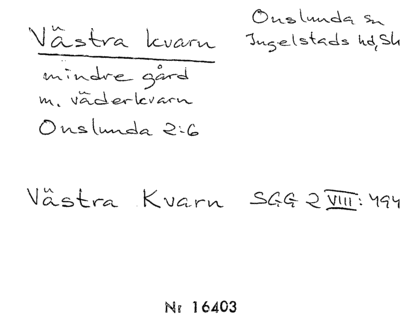 Västra kvarn
Onslunda sn
Ingelstads hd, Sk
mindre gård
m. väderkvarn
Onslunda 2:6
Västra Kvarn SGG 2 VIII: 494
Nr 16403